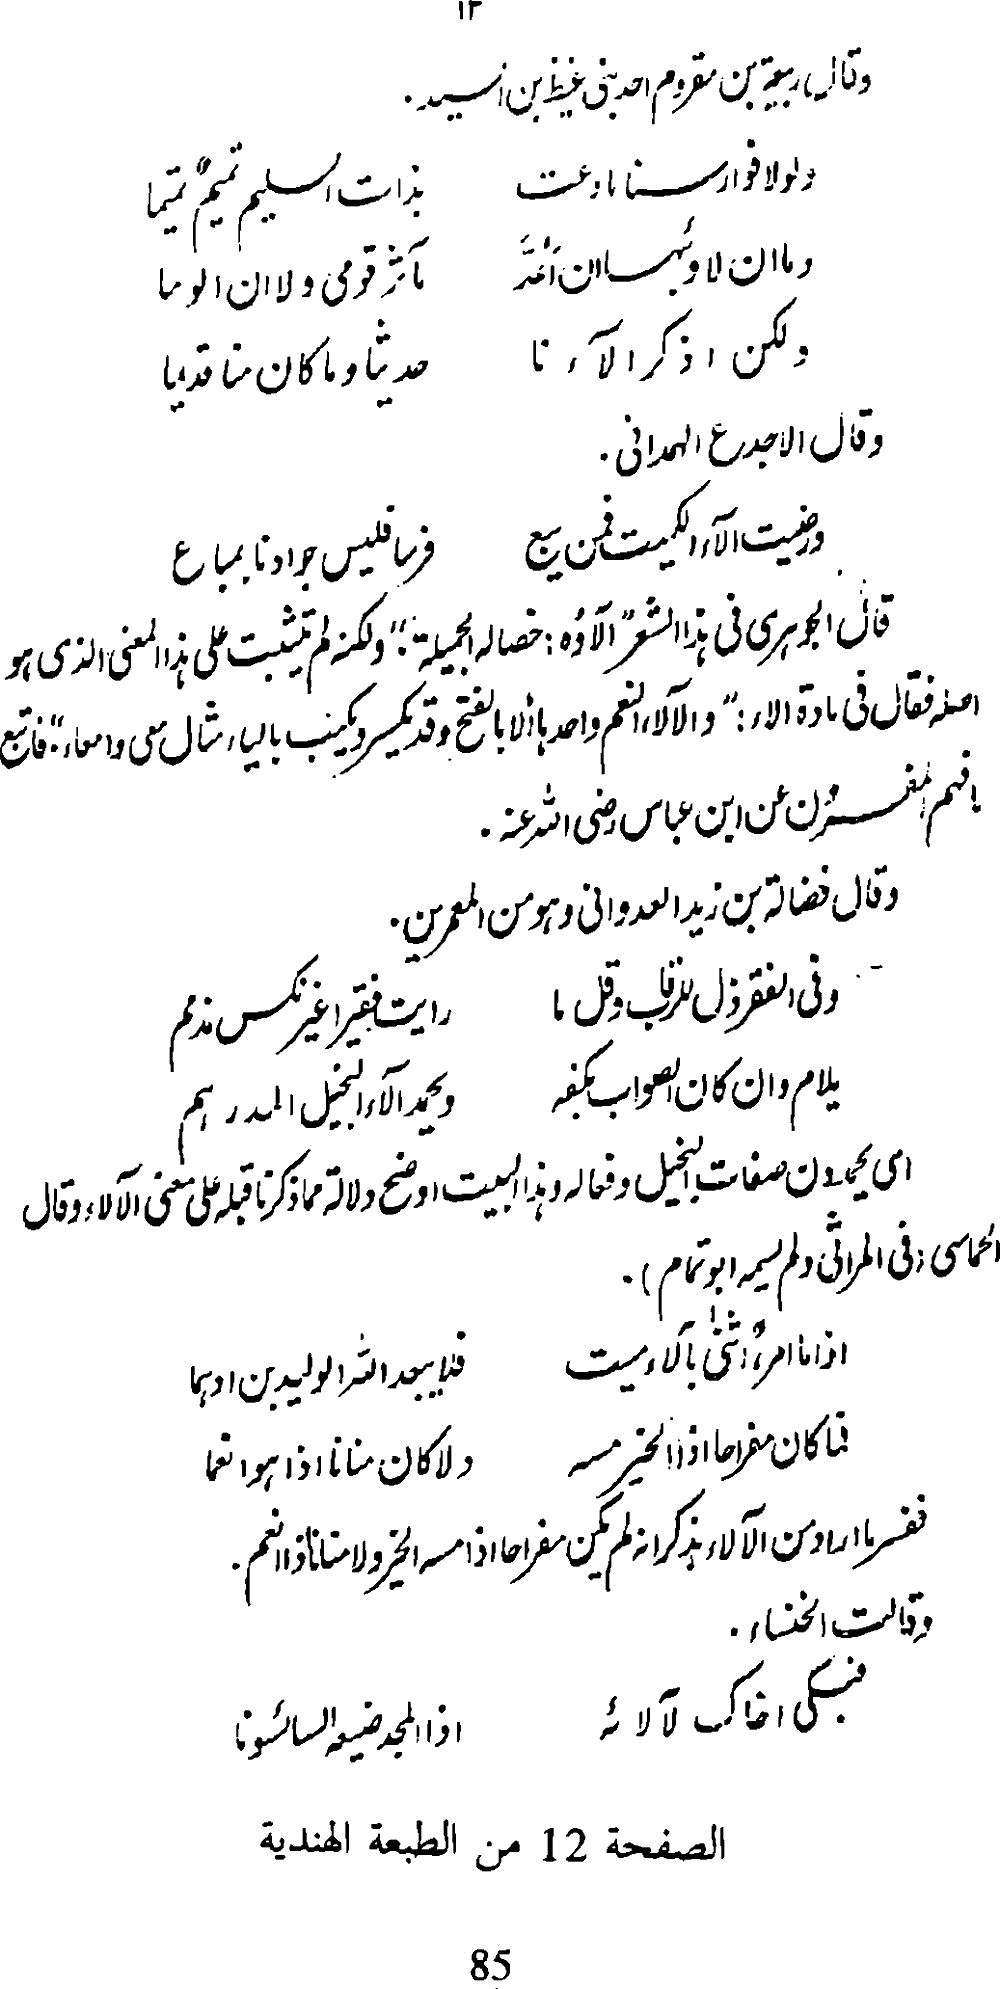 ١٢
وقال ربيعة بن مقروم احد بنى غيظ بن السيد.
ولولا فوارسنا ما دعت بذات السليم تميمٌ تميما
وما ان لاوئبها ان اَعُدَّ مآثر قومى ولا ان الوما
ولكن اذكر الآءنا حديثا وما كان منا قديما
وقال الاجدع الهمدانى.
ورضيت الآء الكميت فمن يبع فرسا فليس جوادنا بمباع
قال الجوهرى فى هذا الشعر "آلاؤه: خصاله الجميلة:" ولكنه لم يتثبت على هذا المعنى الذى هو
اصله فقال فى مادة الاء: "والآلاء النعم واحدها ألا بالفتح وقد يكسر ويكتب بالياء مثال معى وامعاء." فاتبع
ما فهم المفسرون عن ابن عباس رضى الله عنه.
وقال فضالة بن زيد العدوانى وهو من المعمرين.
وفى الفقر ذل للرقاب وقل ما رايت فقيرا غير نكس مذمم
يلام وان كان الصواب بكفه ويحمد آلاء البخيل المدرهم
اى يحمدون صفات البخيل وفعاله وهذا البيت اوضح دلالة مما ذكرنا قبله على معنى الآلاء. وقال
الحماسى (فى المراثى ولم يسمه ابو تمام).
اذا ما امرءٌ اثنى بآلاء ميت فلا يبعد الله الوليد بن ادهما
فما كان مفراحا اذا الخير مسه ولا كان منانا اذا هو انعما
ففسر ما اراد من الآلاء بذكر انه لم يكن مفراحا اذا مسه الخير ولا منانا اذا انعم.
وقالت الخنساء.
فبكى اخاك لآلائه اذا المجد ضيعه السائسونا
الصفحة 12 من الطبعة الهندية
85